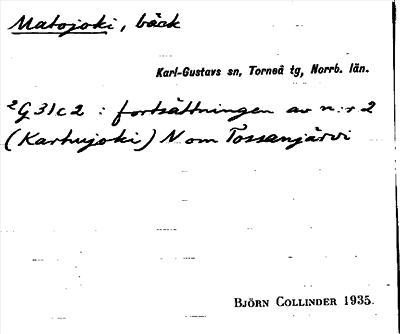 Matojoki, bäck
Karl-Gustavs sn, Torneå tg, Norrb. län.
²G31c2 : fortsättningen av n:r 2
(Karhujoki) N om Tossanjärvi
BJÖRN COLLINDER 1935.